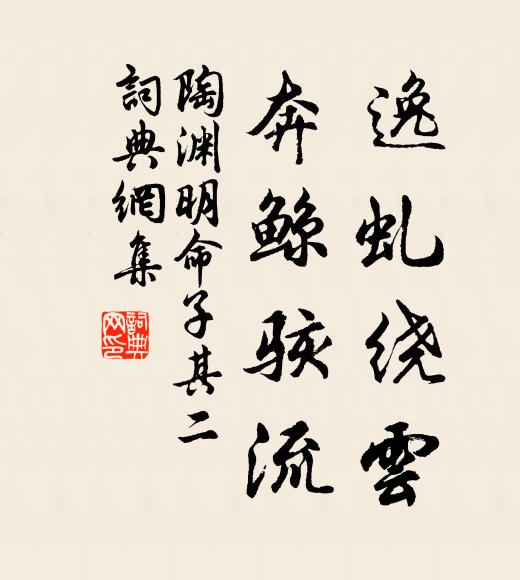 逸虬绕雲
奔鲸骇流
陶渊明命子其二
詞典網集
詞典
网印